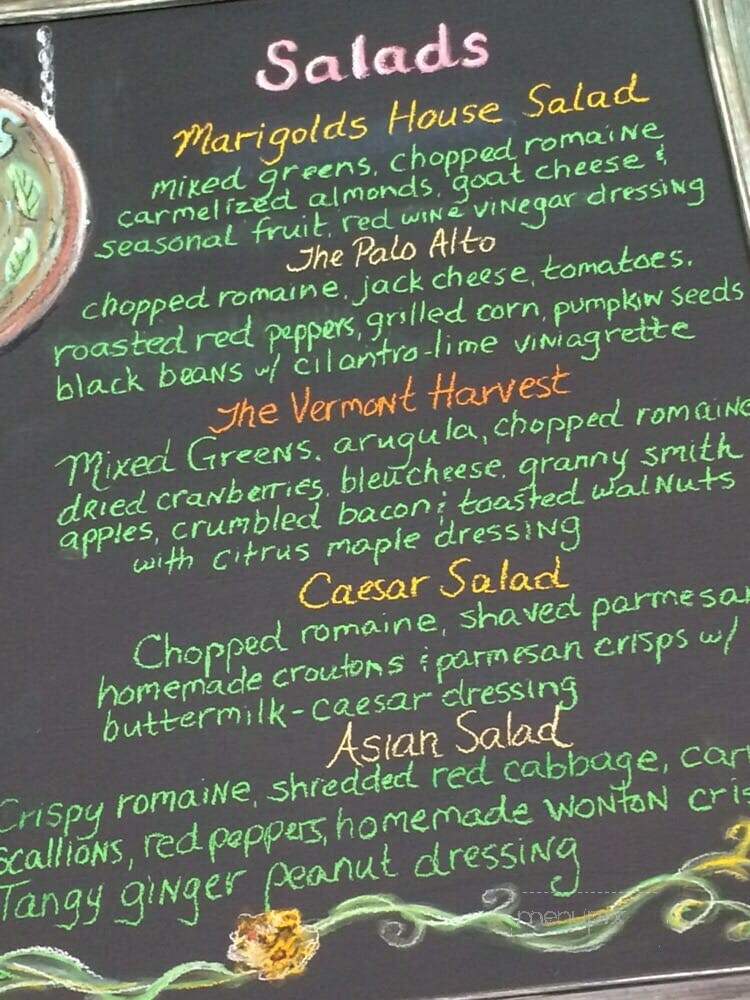 Salads
Marigolds House Salad
Mixed greens, chopped romaine
carmelized almonds, goat cheese &
seasonal fruit, red wine vinegar dressing
The Palo Alto
chopped romaine, jack cheese, tomatoes,
roasted red peppers, grilled corn, pumpkin seeds
black beans w/ cilantro-lime viniagrette
The Vermont Harvest
Mixed Greens, arugula, chopped romaine
dried cranberries, bleu cheese, granny smith
apples, crumbled bacon & toasted walnuts
with citrus maple dressing
Caesar Salad
Chopped romaine, shaved parmesan
homemade croutons & parmesan crisps w/
buttermilk-caesar dressing
Asian Salad
Crispy romaine, shredded red cabbage, car
scallions, red peppers, homemade wonton cris
Tangy ginger peanut dressing
menupix